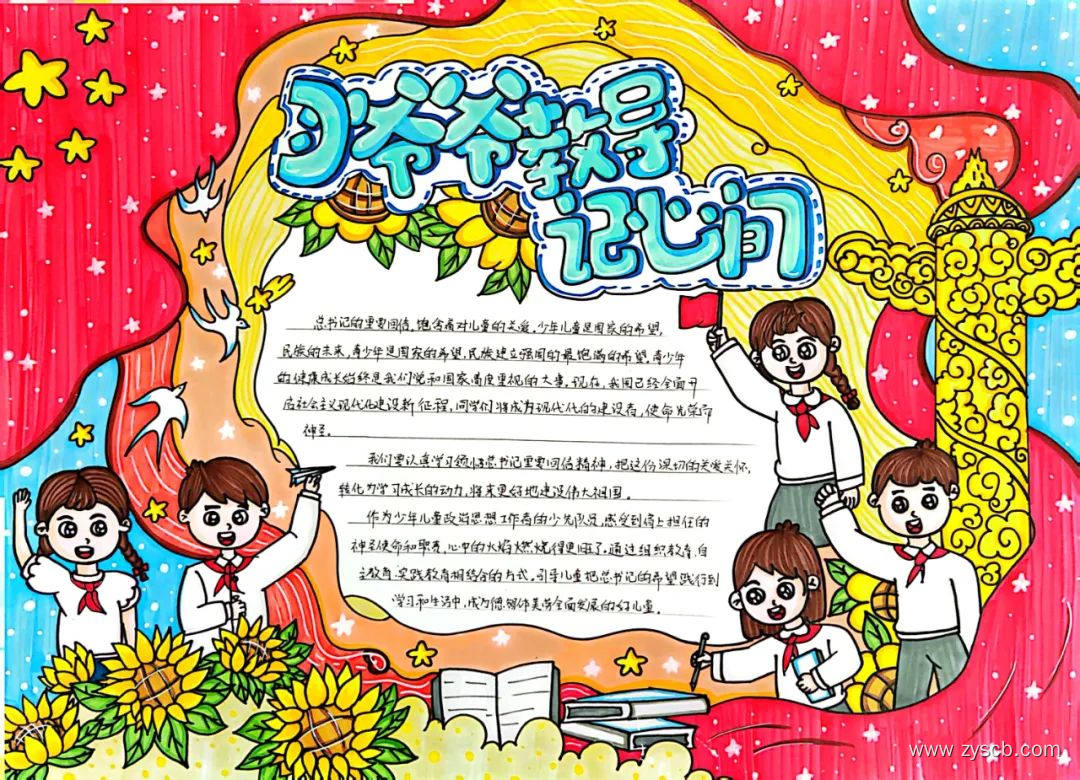 习爷爷教导
记心间
总书记的重要回信,饱含着对儿童的关爱。少年儿童是国家的希望,
民族的未来,青少年是国家的希望,民族建立强国的最饱满的希望。青少年
的健康成长始终是我们党和国家高度重视的大事。现在,我国已经全面开
启社会主义现代化建设新征程,同学们将成为现代化的建设者,使命光荣而
神圣。
我们要认真学习领会总书记重要回信精神,把这份深切的关爱关怀,
转化为学习成长的动力,将来更好地建设伟大祖国。
作为少年儿童政治思想工作者的少先队员,感受到肩上担任的
神圣使命和职责,心中的火焰燃烧得更旺了。通过组织教育、自
主教育、实践教育相结合的方式,引导儿童把总书记的希望践行到
学习和生活中,成为德智体美劳全面发展的好儿童。
www.zyscb.com